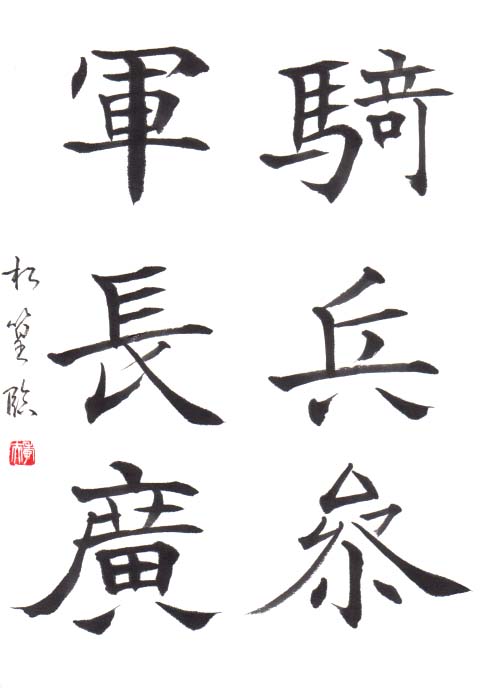 騎兵參
軍長廣
松篁臨